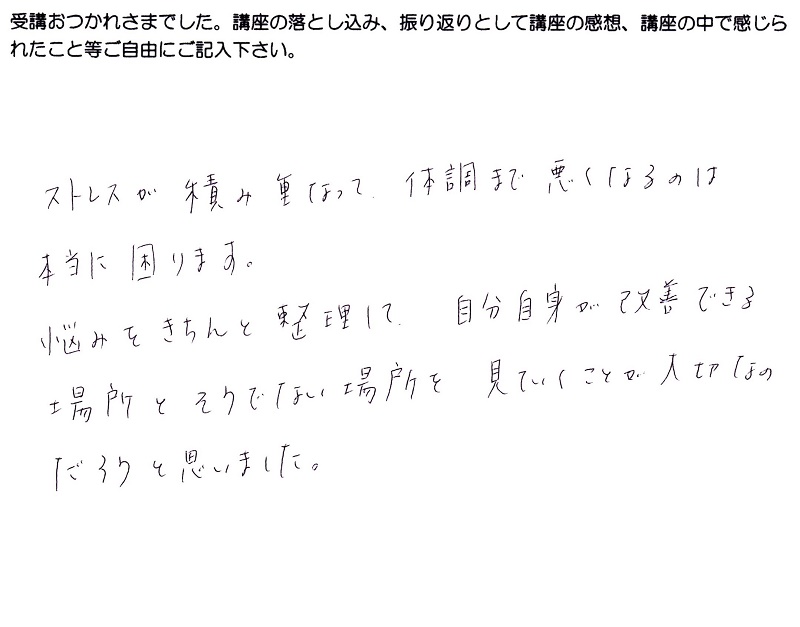 受講おつかれさまでした。講座の落とし込み、振り返りとして講座の感想、講座の中で感じら
れたこと等ご自由にご記入下さい。
ストレスが積み重なって、体調まで悪くなるのは
本当に困ります。
悩みをきちんと整理して、自分自身が改善できる
場所とそうでない場所を見ていくことが大切なの
だろうと思いました。